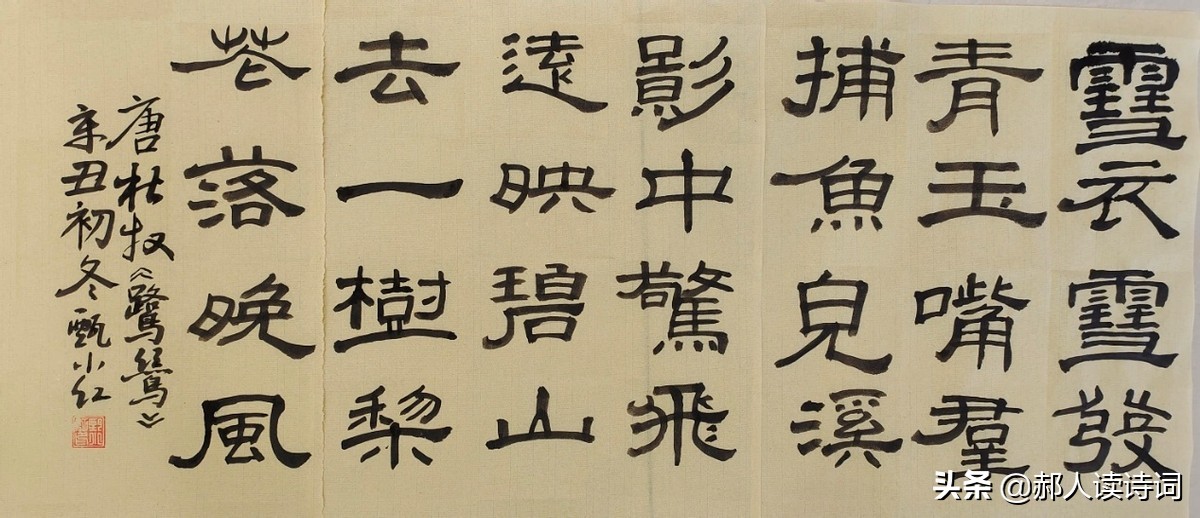 雪衣雪發
青玉嘴羣
捕魚兒溪
影中驚飛
遠映碧山
去一樹梨
花落晚風
唐杜牧《鷺鷥》
辛丑初冬甄小红
头条 @郝人读诗词